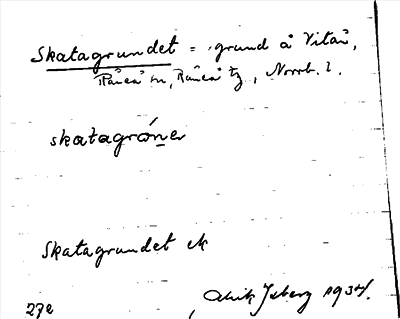 Skatagrundet = grund å Vitån,
Råneå sn, Råneå tg, Norrb. l.
skatagróner
Skatagrundet ek
Isberg 1934.
27e